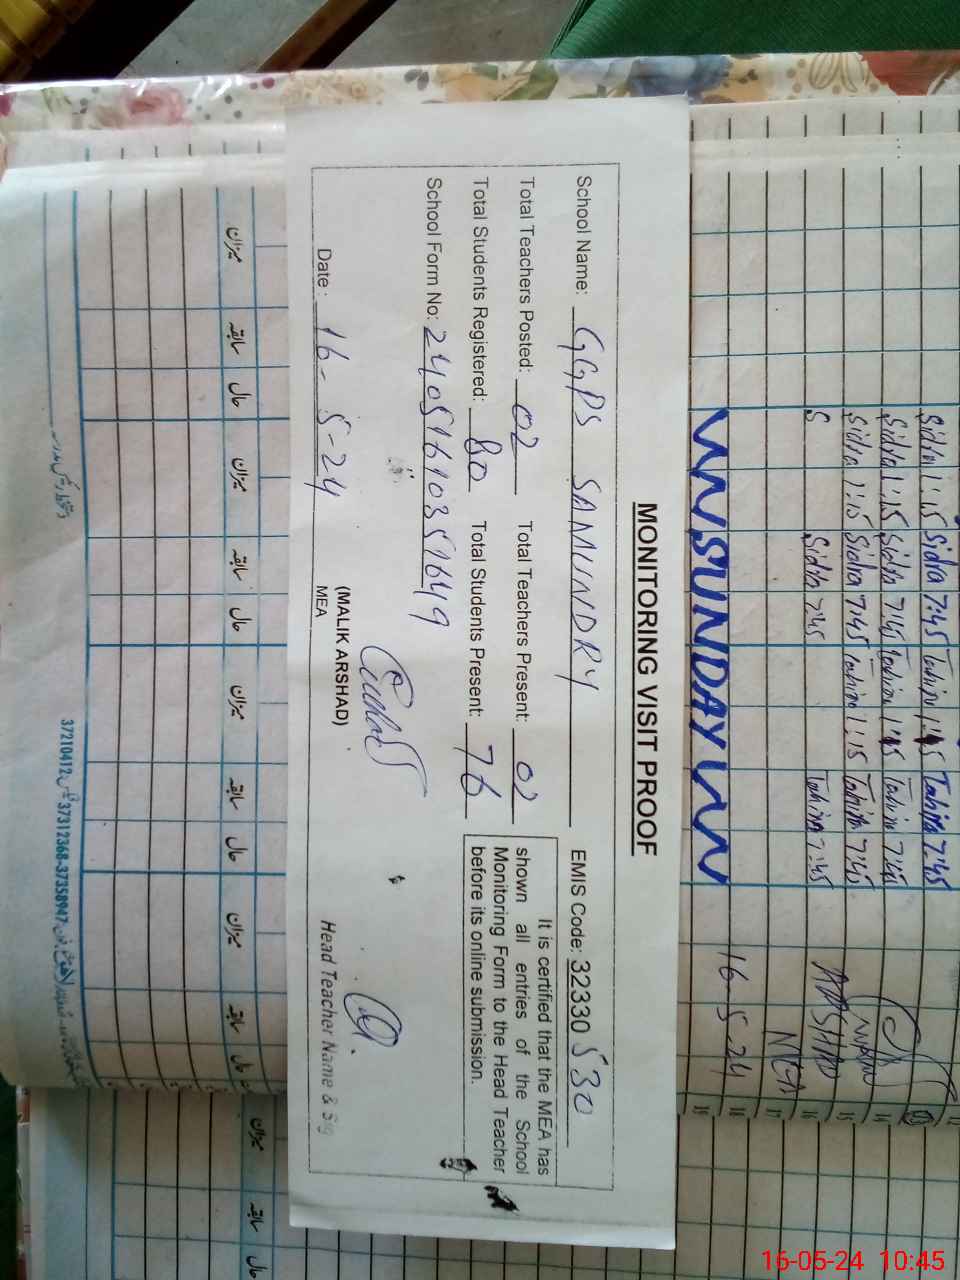 MONITORING VISIT PROOF
School Name: GGPS SAMUNDRY EMIS Code: 32330530
Total Teachers Posted: 02 Total Teachers Present: 02
Total Students Registered: 80 Total Students Present: 76
It is certified that the MEA has shown all entries of the School Monitoring Form to the Head Teacher before its online submission.
School Form No: 24051610351649
(MALIK ARSHAD)
Date: 16-5-24 MEA Head Teacher Name & Sig
Sidra 1:15 Sidra 7:45 Tahira 1:15 Tahira 7:45
Sidra 1:15 Sidra 7:45 Tahira 1:15 Tahira 7:45
Sidra 1:15 Sidra 7:45 Tahira 1:15 Tahira 7:45
S Sidra 7:45 Tahira 7:45
SUNDAY
ARSHAD
MEA
16-5-24
14
15
16
17
18
19
میزان سابقہ حال میزان سابقہ حال میزان سابقہ حال میزان سابقہ حال
میزان سابقہ حال
37210412 37312368-37358947
16-05-24 10:45